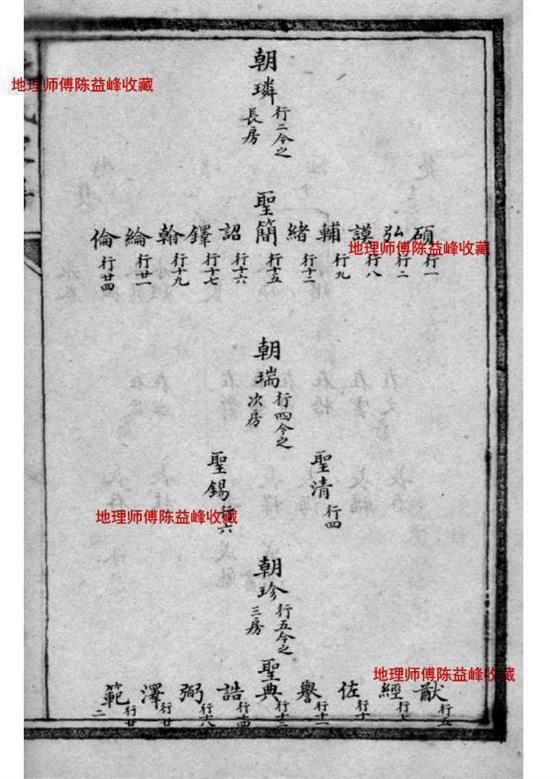 地理师傅陈益峰收藏
朝璘 行二今之長房
聖簡
碩 弘 謨 輔 緒 詔 鐸 翰 綸 倫
行一 行二 行八 行九 行十二 行十五 行十六 行十七 行十九 行廿一 行廿四
地理师傅陈益峰收藏
朝瑞 行四今之次房
聖清 行四
聖錫 行六
地理师傅陈益峰收藏
朝珍 行五今之三房
聖典
猷 經 佐 譽 誥 弼 澤 範
行五 行七 行十 行十一 行十三 行十四 行十八 行廿 行廿二
地理师傅陈益峰收藏